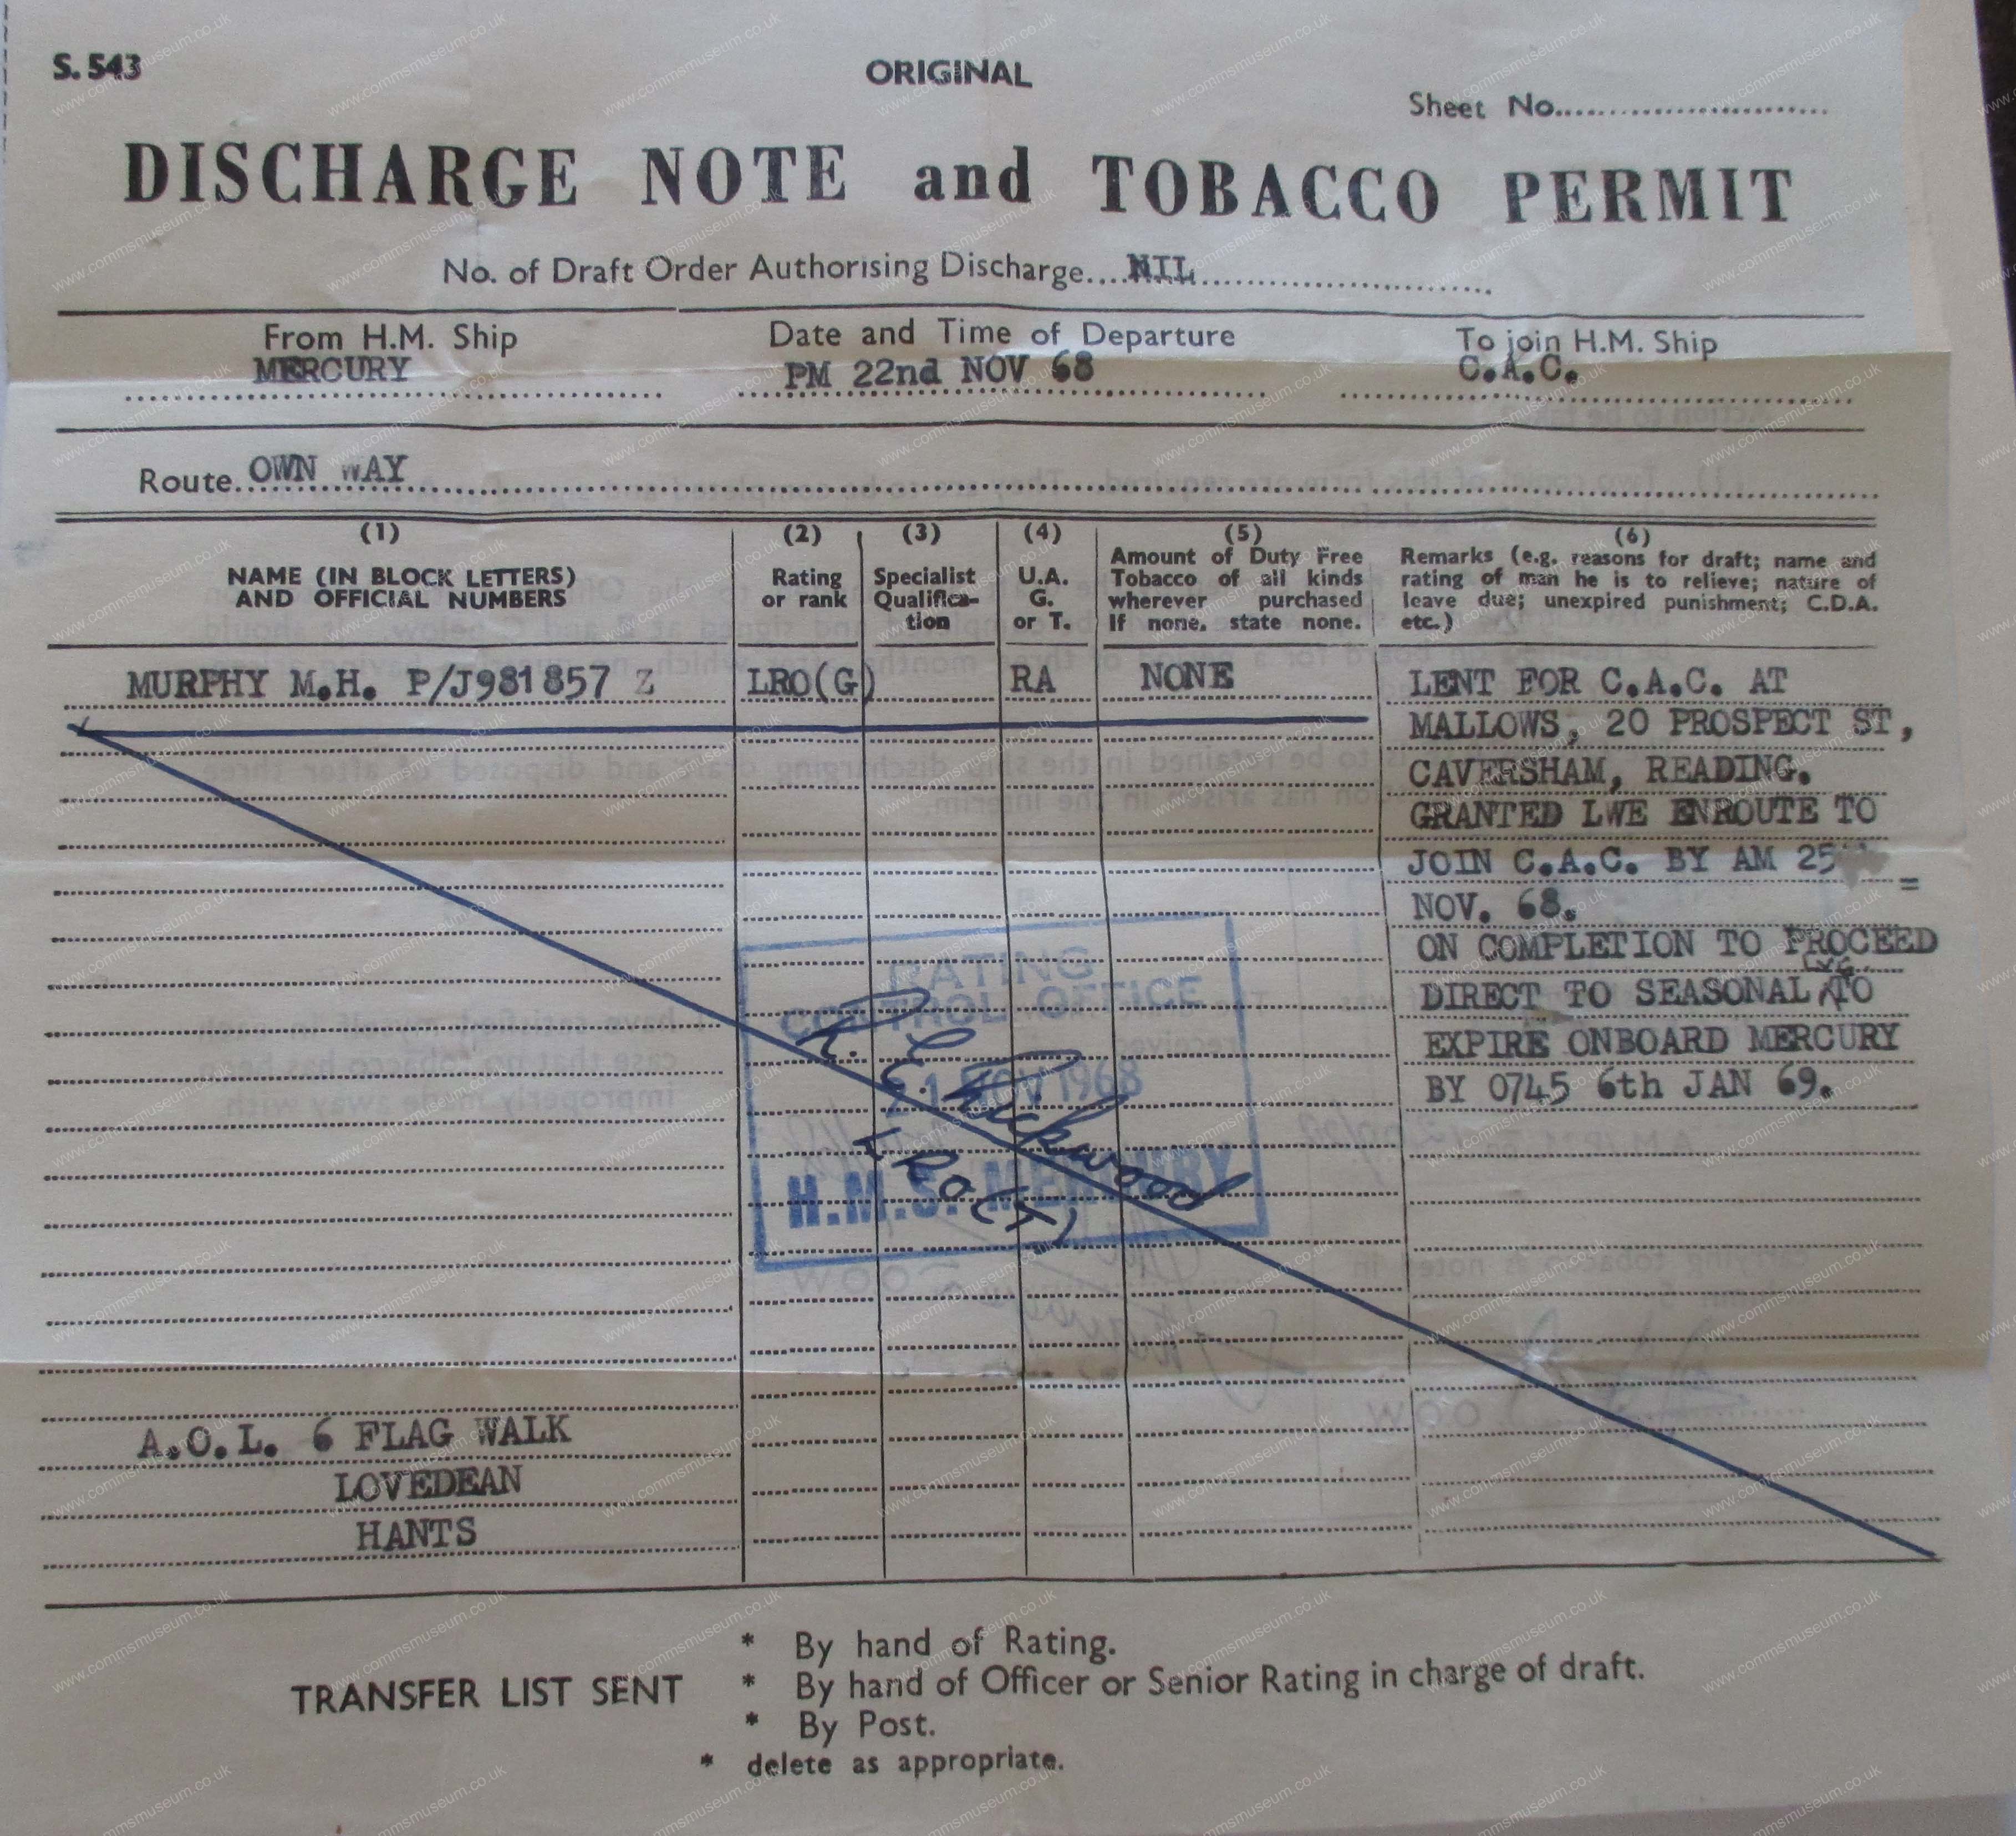 S. 543
ORIGINAL
Sheet No.
DISCHARGE NOTE and TOBACCO PERMIT
No. of Draft Order Authorising Discharge....NIL
From H.M. Ship
MERCURY
Date and Time of Departure
PM 22nd NOV 68
To join H.M. Ship
C.A.C.
Route. OWN WAY
(1)
NAME (IN BLOCK LETTERS)
AND OFFICIAL NUMBERS
(2)
Rating
or rank
(3)
Specialist
Qualifica-
tion
(4)
U.A.
G.
or T.
(5)
Amount of Duty Free
Tobacco of all kinds
wherever purchased
If none, state none.
(6)
Remarks (e.g. reasons for draft; name and
rating of man he is to relieve; nature of
leave due; unexpired punishment; C.D.A.
etc.)
MURPHY M.H. P/J981857 Z
LRO(G)
RA
NONE
LENT FOR C.A.C. AT
MALLOWS, 20 PROSPECT ST,
CAVERSHAM, READING.
GRANTED LWE ENROUTE TO
JOIN C.A.C. BY AM 25
NOV. 68.
ON COMPLETION TO PROCEED
DIRECT TO SEASONAL LVE TO
EXPIRE ONBOARD MERCURY
BY 0745 6th JAN 69.
RATING
CONTROL OFFICE
21 NOV 1968
H.M.S. MERCURY
LRO(T)
A.O.L. 6 FLAG WALK
LOVEDEAN
HANTS
TRANSFER LIST SENT
* By hand of Rating.
* By hand of Officer or Senior Rating in charge of draft.
* By Post.
* delete as appropriate.
www.commsmuseum.co.uk